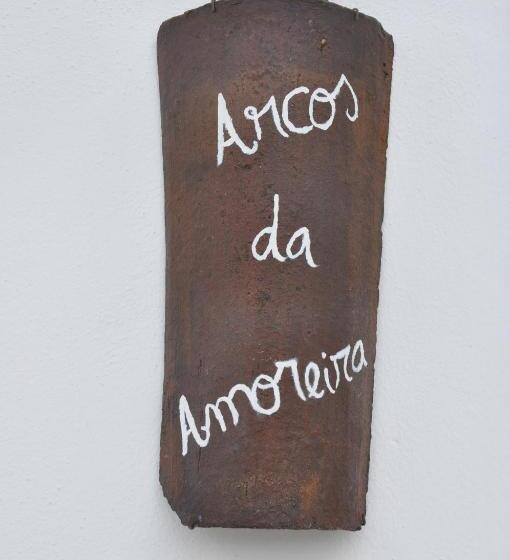 Arcos
da
Amoreira